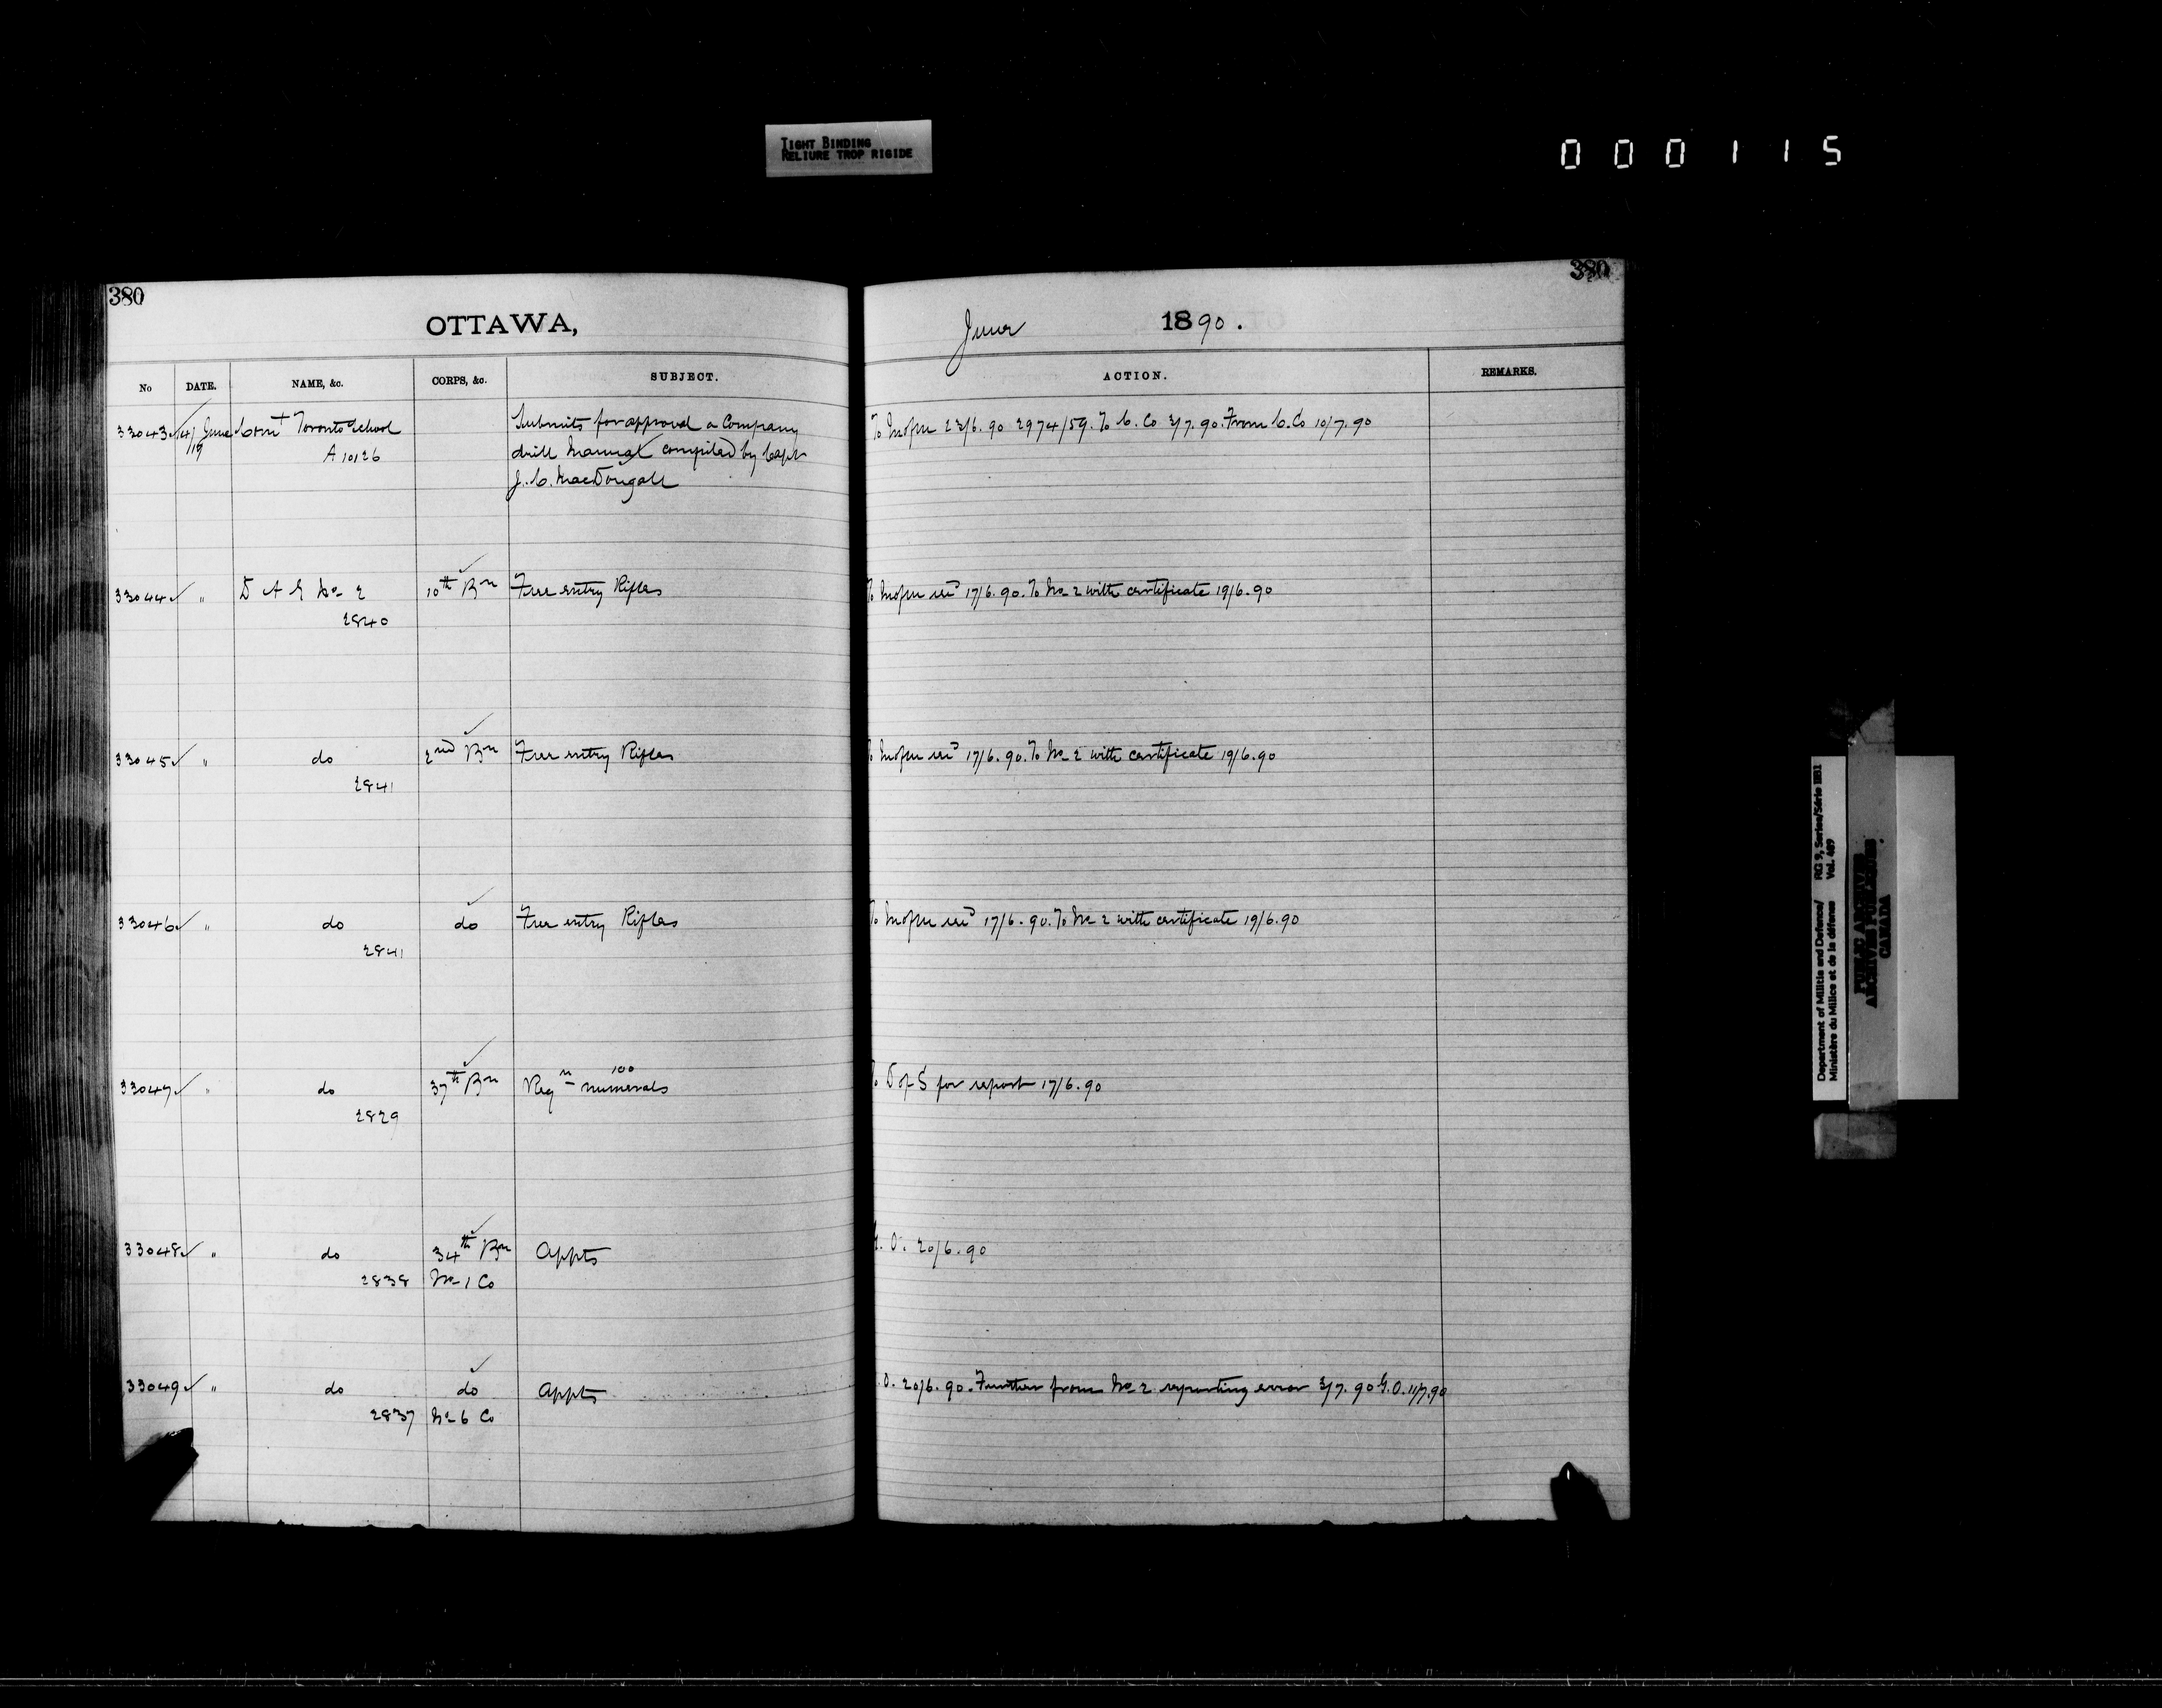 TIGHT BINDING
RELIURE TROP RIGIDE
000115
380
380
OTTAWA,
June 1890.
No DATE. NAME, &c. CORPS, &c. SUBJECT. ACTION. REMARKS.
33043 14/19 June Comt Toronto School Submits for approval a Company To M of M 23/6.90 2974/59. To C. Co 3/7.90. From C. Co 10/7.90
A 10126 drill Manual compiled by Capt
J. C. MacDougall
33044 " D A G No 2 10th Bn Free entry Rifles To M of M 17/6.90. To No 2 with certificate 19/6.90
2840
33045 " do 2nd Bn Free entry Rifles M of M 17/6.90. To No 2 with certificate 19/6.90
2841
33046 " do do Free entry Rifles To M of M 17/6.90. To No 2 with certificate 19/6.90
2841
33047 " do 37th Bn Reqn 100 numerals D of S for report 17/6.90
2829
33048 " do 34th Bn Appts G. O. 20/6.90
2838 No 1 Co
33049 " do do Appts . O. 20/6.90. Further from No 2 reporting error 3/7.90 G.O. 11/7.90
2837 No 6 Co
Department of Militia and Defence/ RG 9, Series/Série IIB1
Ministère du Milice et de la défense Vol. 487
PUBLIC ARCHIVES
ARCHIVES PUBLIQUES
CANADA